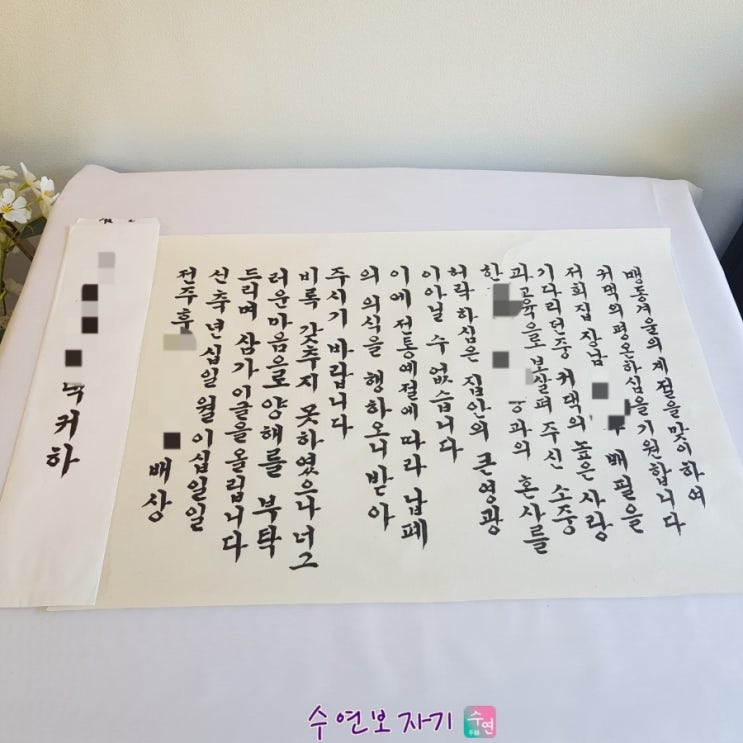 맹동겨울의 계절을맞이하여
귀댁의 평온하심을기원합니다
저희집 장남 배필을
기다리던중 귀댁의 높은 사랑
과 교육으로 보살펴 주신 소중
한 과의 혼사를
허락하심은 집안의 큰영광
이아닐 수 없습니다
이에 전통예절에 따라 납폐
의 의식을 행하오니 받아
주시기 바랍니다
비록 갖추지 못하였으나 너그
러운마음으로 양해를 부탁
드리며 삼가 이글을 올립니다
신축년 십일 월 이십일일
전주후
배상
귀하
수연보자기
수연